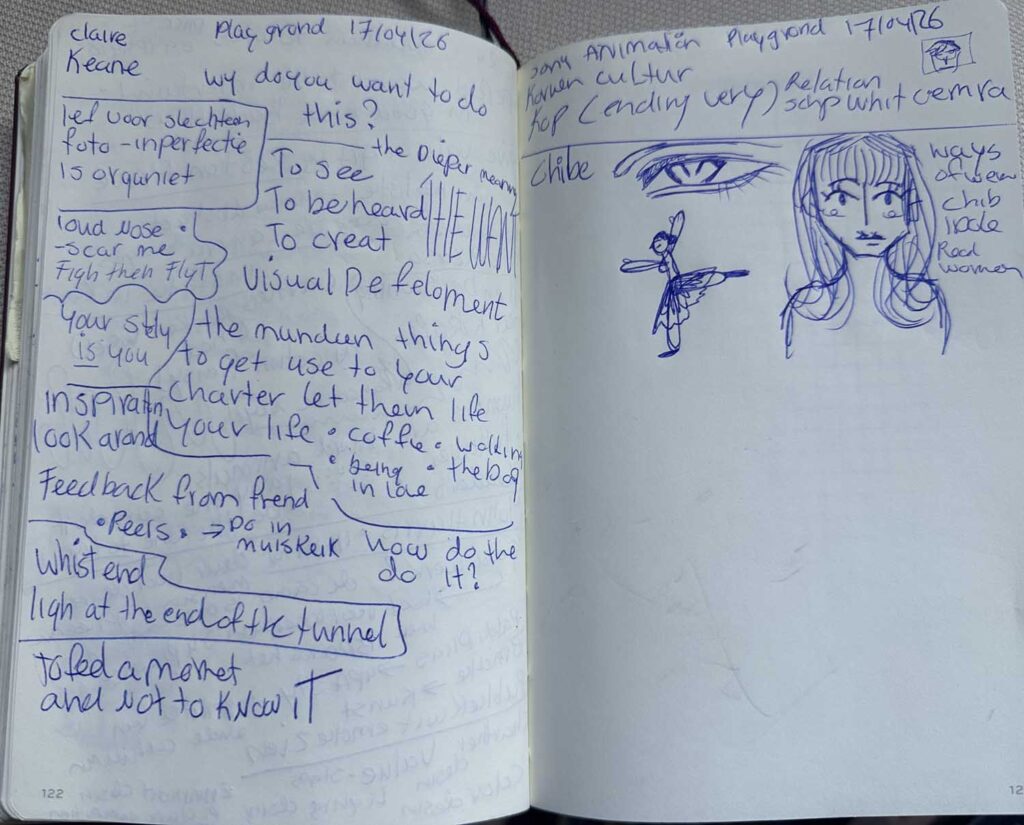 claire
Keane
Playgrond 17/04/26
wy do you want to do
this?
lef voor slechteen
foto - inperfectie
is organiet
the Dieper meaning
To see
To be heard
To creat
THE WANT
loud nose
- scar me
Figh then FlyT
Visual Defeloment
Your stily
is you
the mundeen things
to get use to your
Charter let them life
your life • coffie • walking
• being • the Dog
in love
inspiratin
look arond
Feedback from frend
• Peers • → Do in
how do the
do it?
whistend
ligh at the end of the tunnel
to feed a momet
and not to know IT
122
sony Animation Playgrond 17/04/26
Korwen cultur
Kop (ending very) Relation
schp whit cemra
Chibe
ways
chib
Real
women
12